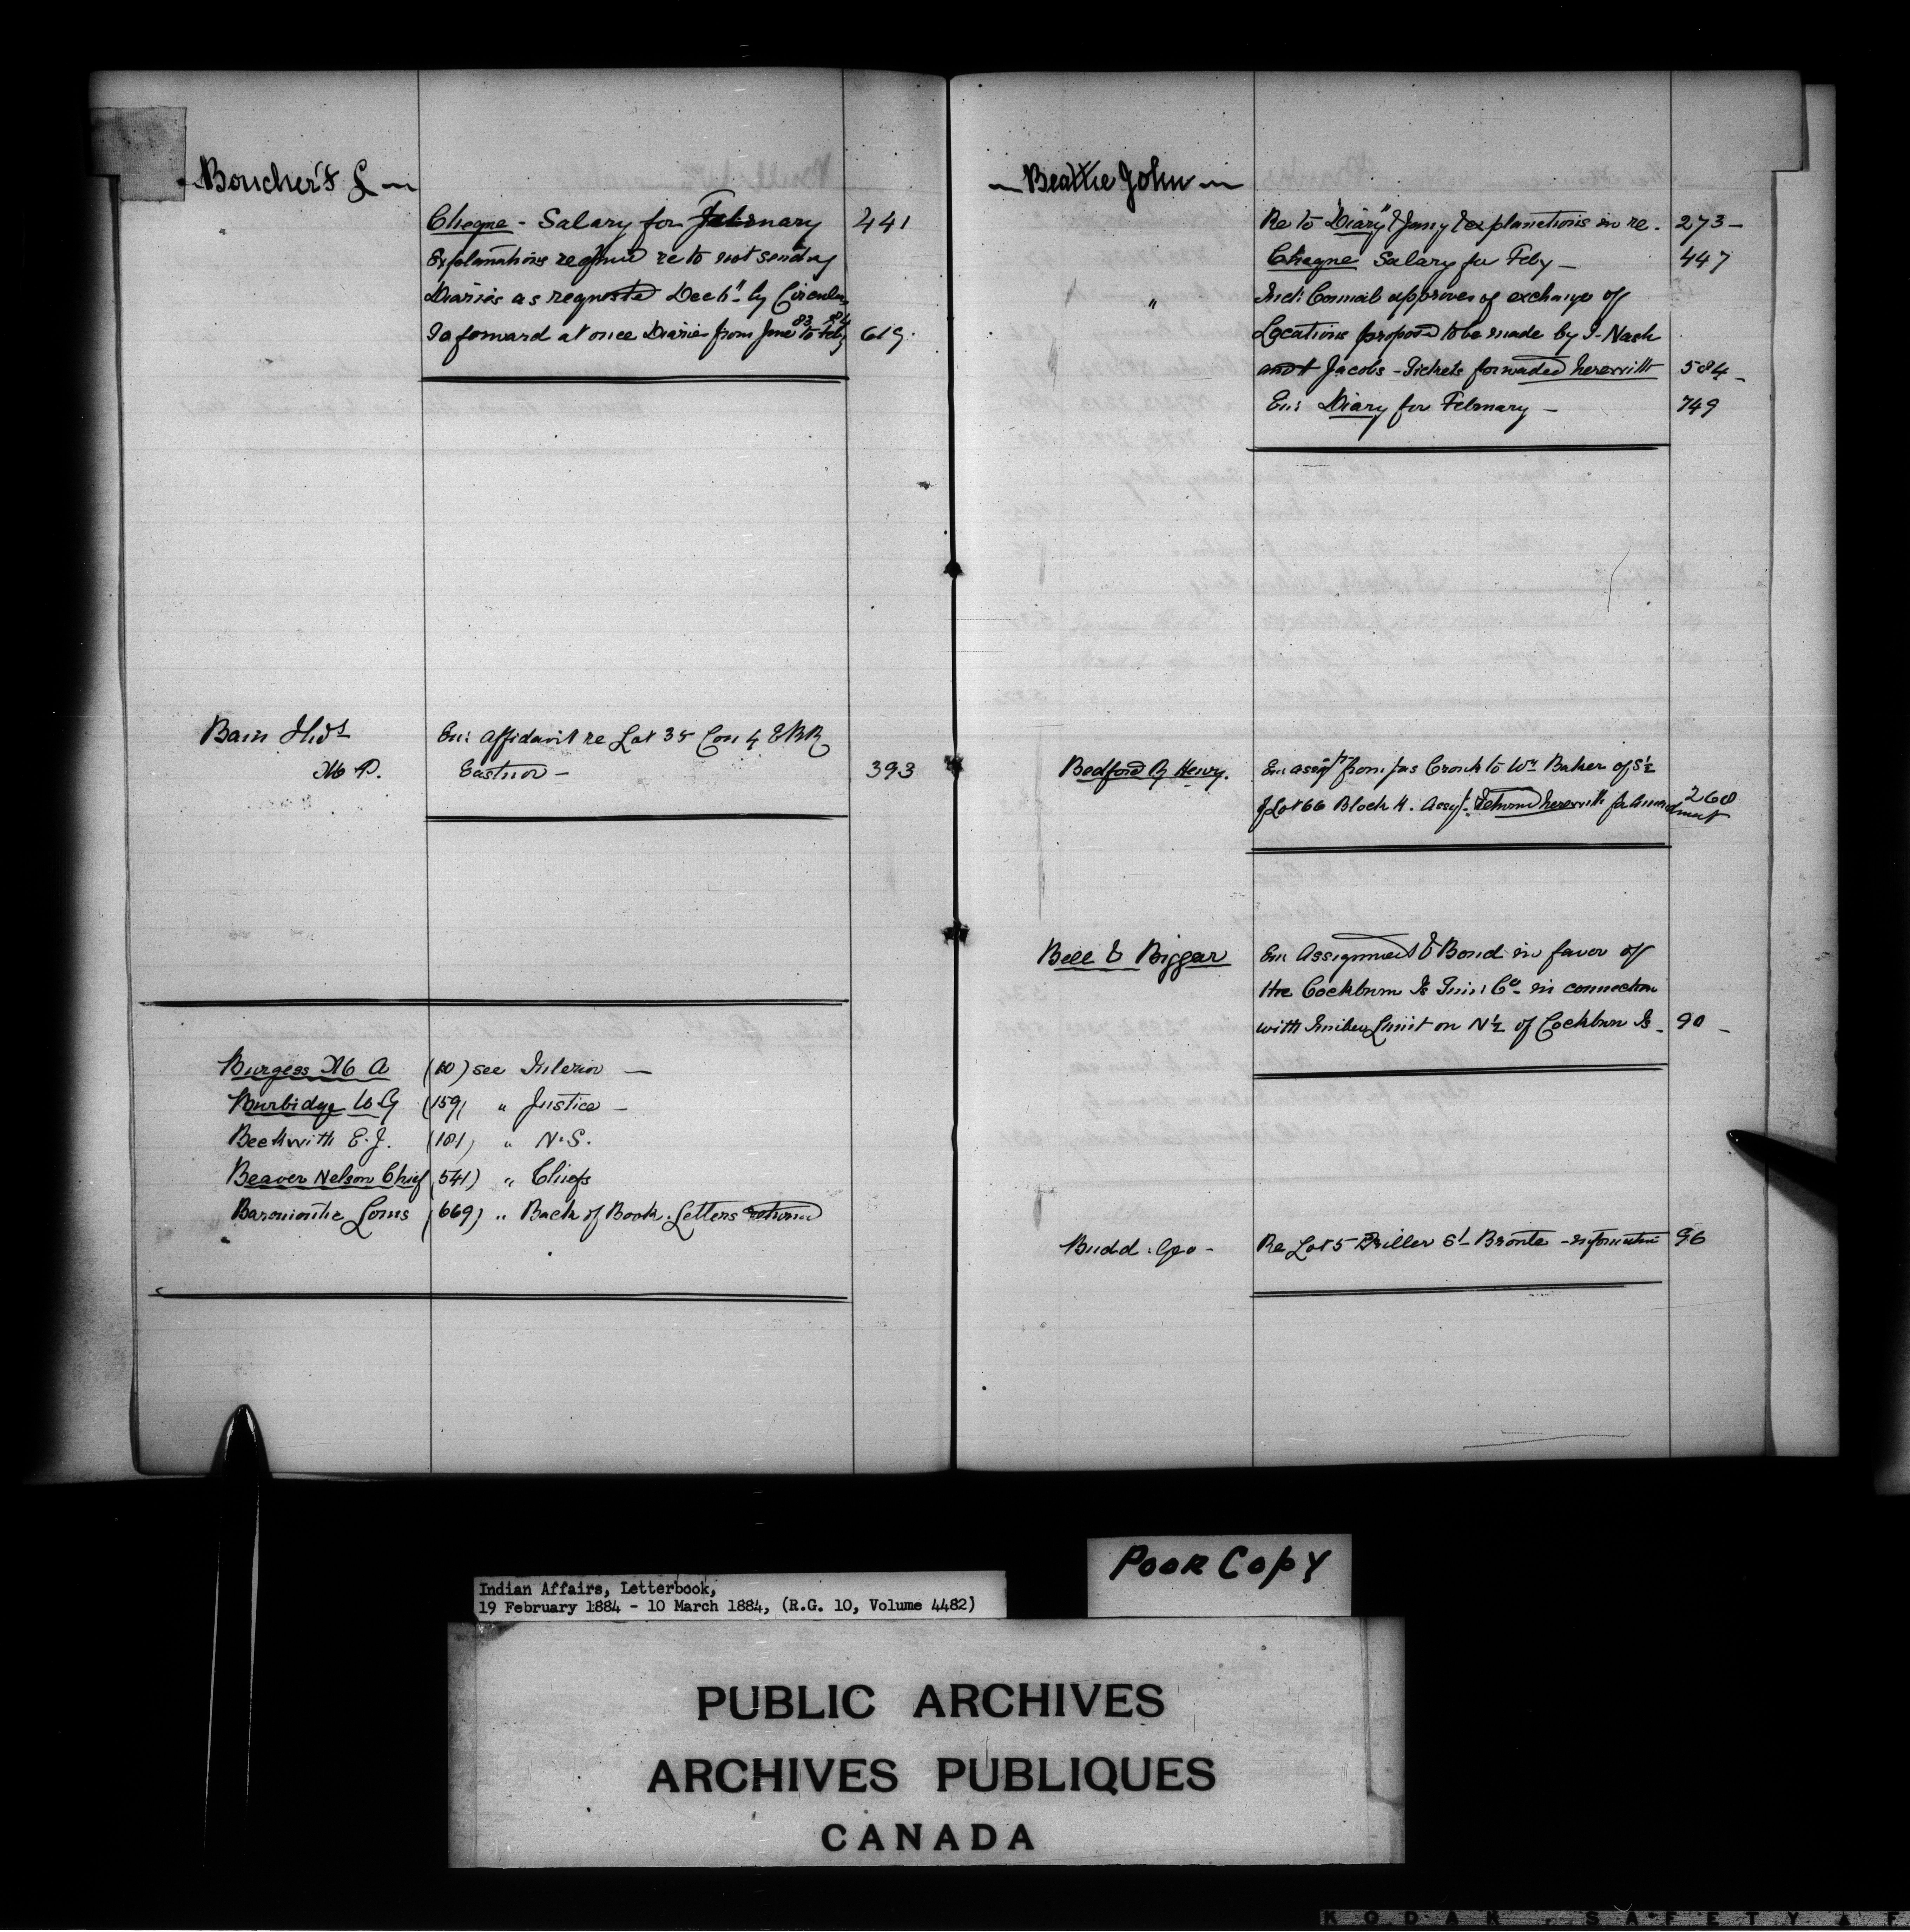 Boucher F L
Cheque - Salary for February 441
Explanations required re to not sending
Diaries as requested Decr by Circular
To forward at once Diaries from June 83 to Feby 84 619.
Bain Thos
M P.
En: Affidavit re Lot 35 Con 4 EBR
Eastnor - 393
Burgess A (10) see Interior -
Burbidge G (159) " Justice -
Beckwith E. J. (181) " N. S.
Beaver Nelson Chief (541) " Chiefs
Louis (669) " Back of Book Letters returned
Beattie John
Re to "Diary" Jany & explanations in re. 273 -
Cheque Salary for Feby - 447
" Ind: Council approves of exchange of
Locations proposed to be made by I. Nash
and Jacobs - Tickets forwaded herewith 584 -
En: Diary for February - 749
Bedford Henry.
En: assigt from Jas Cronk to Wm Baker of S½
of Lot 66 Block H. Assgt. returned herewith for amendment 260
Bell & Biggar
En: Assignment & Bond in favor of
the Cockburn Is Co in connection
with Limit on N½ of Cockburn Is - 90 -
Budd Geo -
Re Lot 5 St Bronte - information 96
Poor Copy
Indian Affairs, Letterbook,
19 February 1884 - 10 March 1884, (R.G. 10, Volume 4482)
PUBLIC ARCHIVES
ARCHIVES PUBLIQUES
CANADA
KODAK SAFETY F